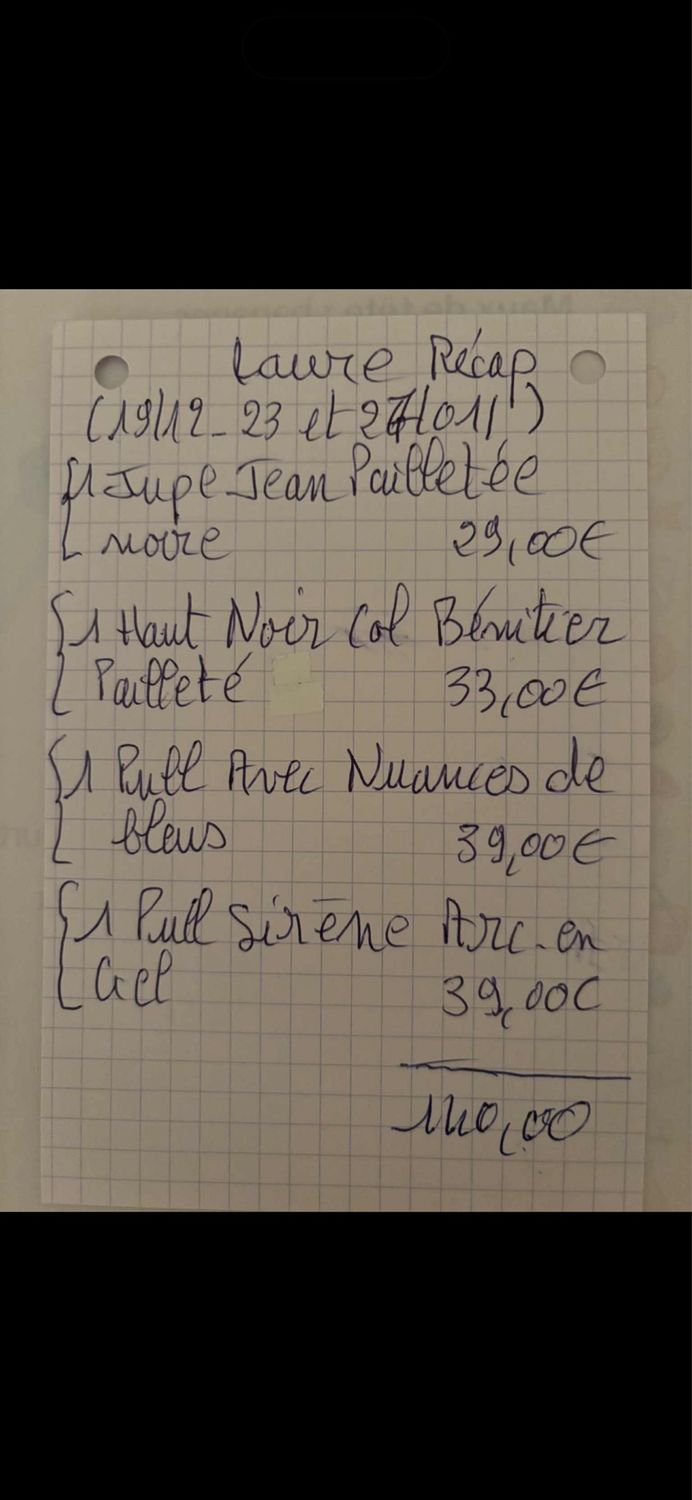 Laure Récap
(19/12-23 et 27/01/)
{1 Jupe Jean Pailletée
noire 29,00€
{1 Haut Noir Col Bénitier
Pailleté 33,00€
{1 Pull Avec Nuances de
bleus 39,00€
{1 Pull Sirène Arc-en
Ciel 39,00€
140,00